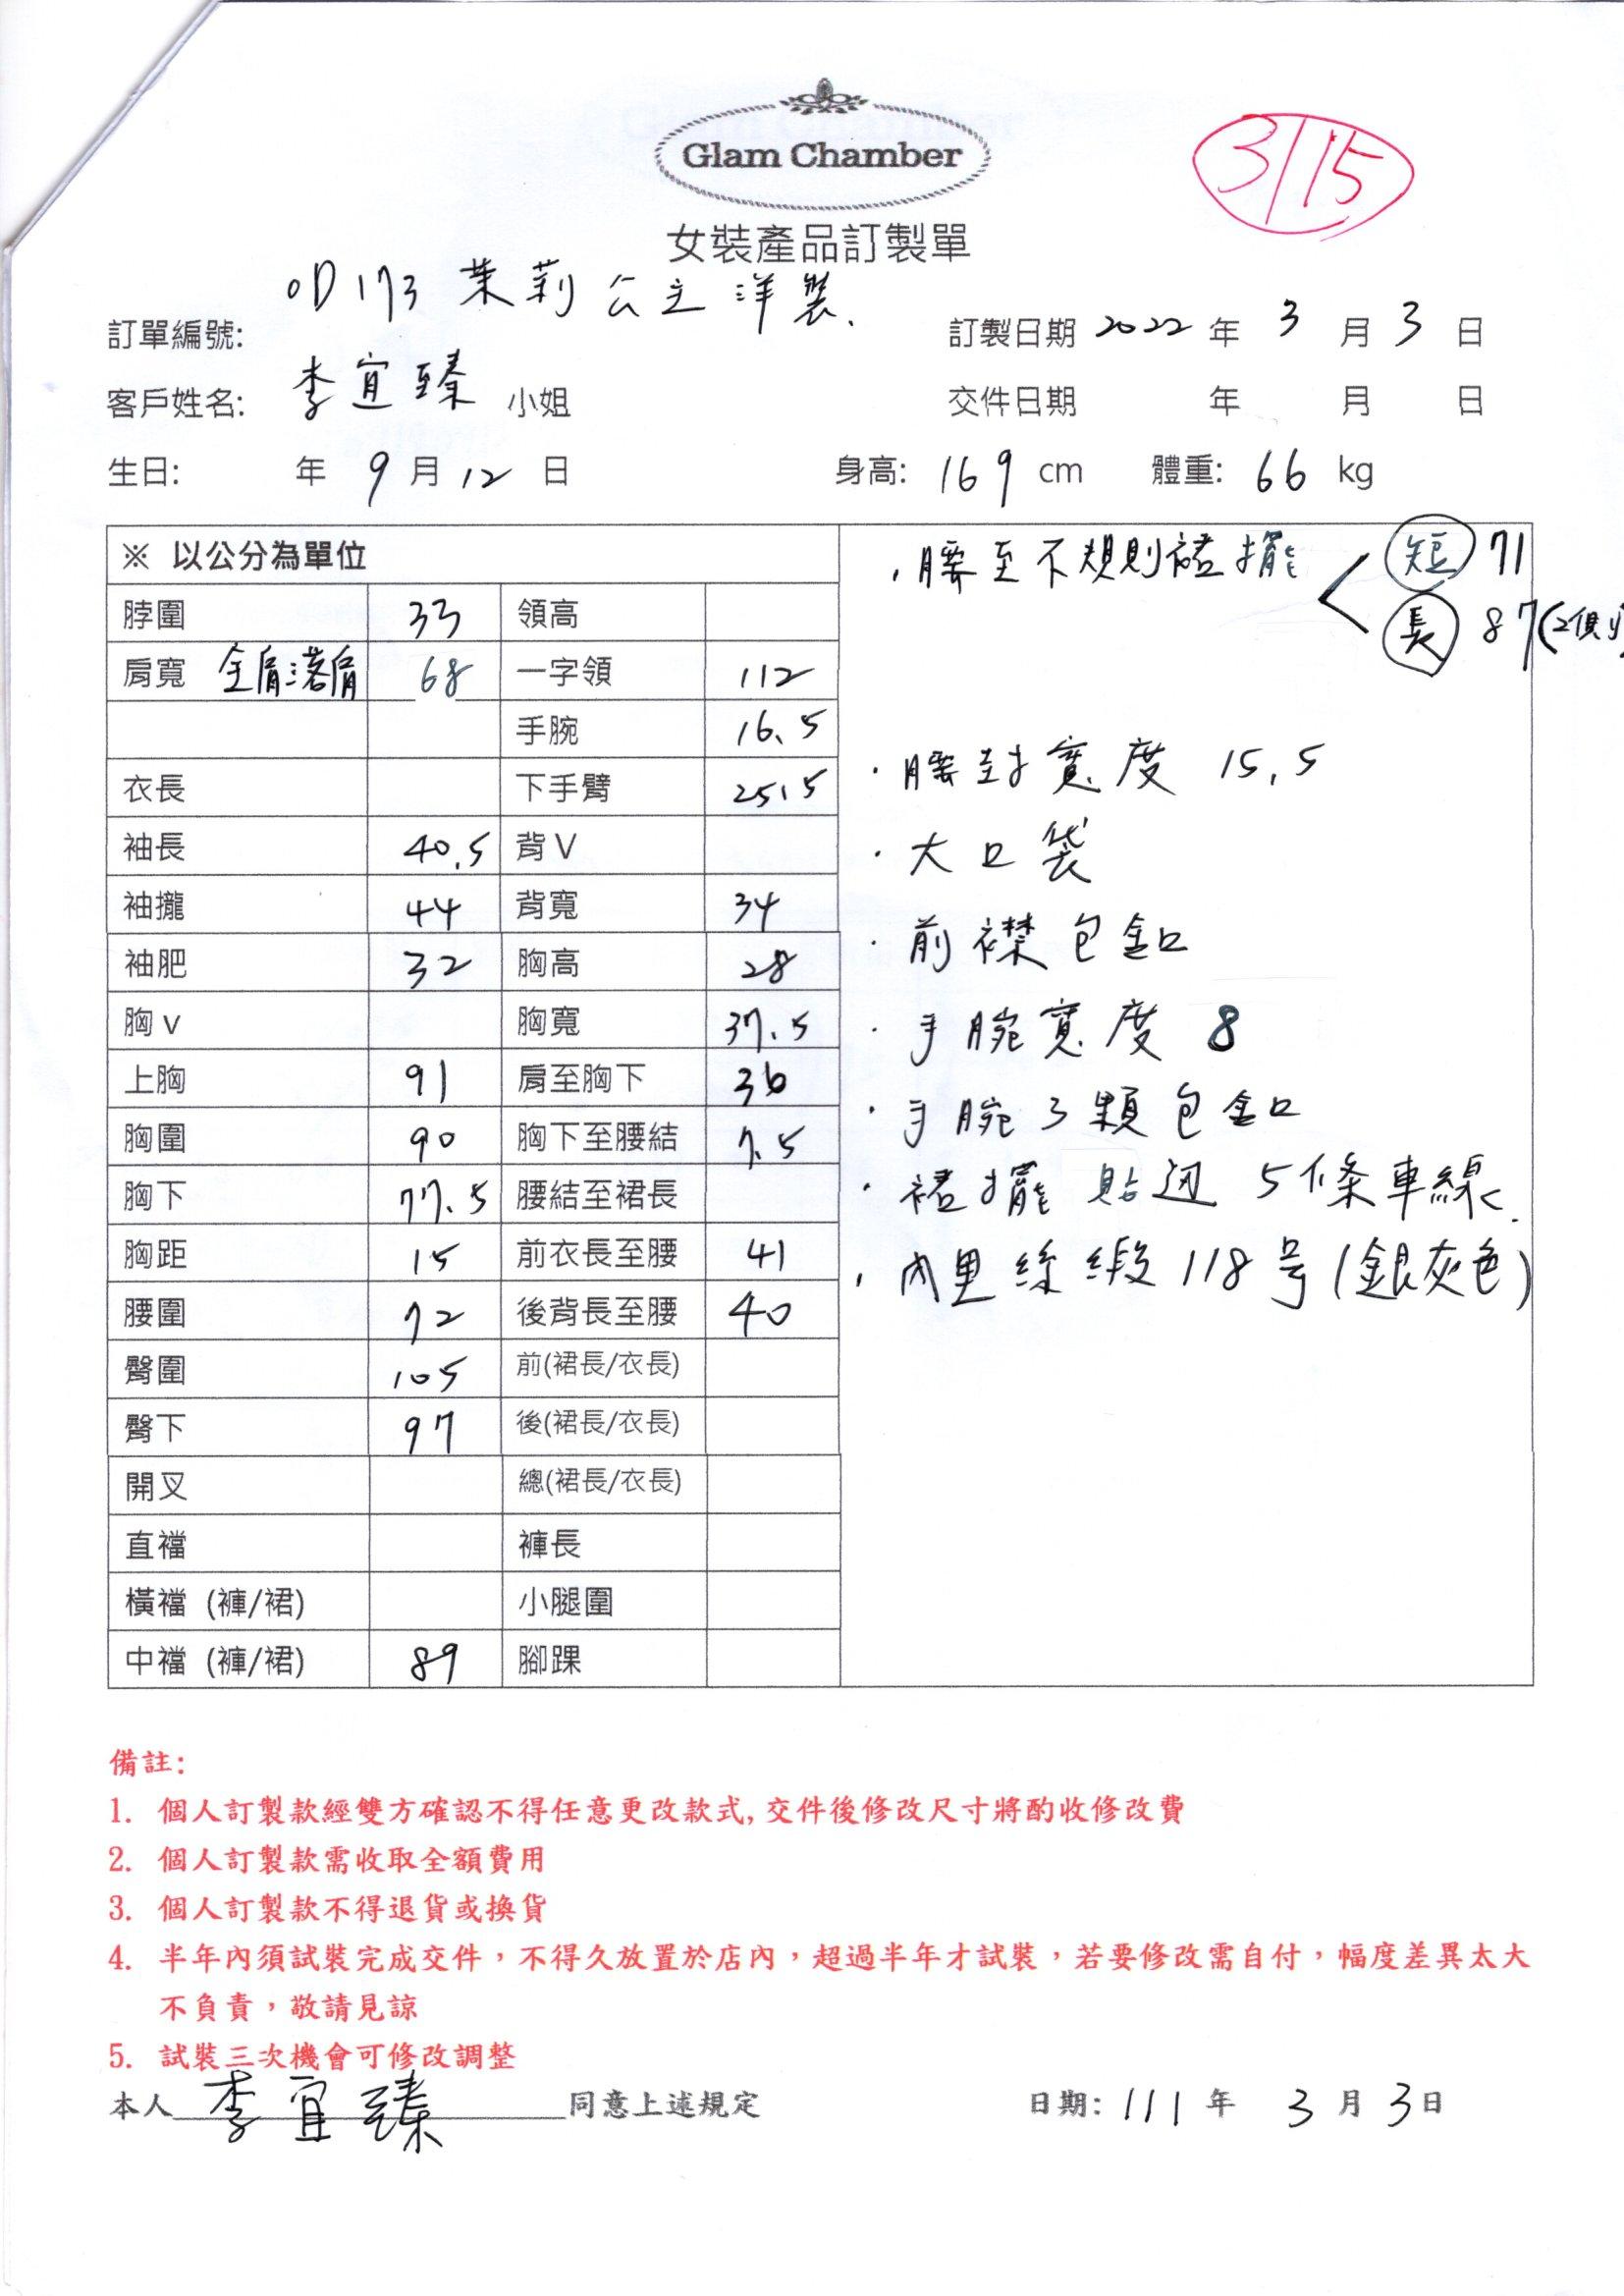 Glam Chamber
3/15
女裝產品訂製單
訂單編號: OD173 茉莉公主洋裝. 訂製日期 2022 年 3 月 3 日
客戶姓名: 李宜臻 小姐 交件日期 年 月 日
生日: 年 9 月 12 日 身高: 169 cm 體重: 66 kg
※ 以公分為單位
脖圍 33 領高
肩寬 全肩落肩 68 一字領 112
手腕 16.5
衣長 下手臂 25.5
袖長 40.5 背V
袖攏 44 背寬 34
袖肥 32 胸高 28
胸v 胸寬 37.5
上胸 91 肩至胸下 36
胸圍 90 胸下至腰結 7.5
胸下 77.5 腰結至裙長
胸距 15 前衣長至腰 41
腰圍 72 後背長至腰 40
臀圍 105 前(裙長/衣長)
臀下 97 後(裙長/衣長)
開叉 總(裙長/衣長)
直襠 褲長
橫襠 (褲/裙) 小腿圍
中襠 (褲/裙) 89 腳踝
・腰至不規則裙擺 < 短 71
長 87 (2側)
・腰封寬度 15.5
・大口袋
・前襟包釦
・手腕寬度 8
・手腕3顆包釦
・裙擺 貼边 5條車線.
・內里絲緞118号(銀灰色)
備註:
1. 個人訂製款經雙方確認不得任意更改款式,交件後修改尺寸將酌收修改費
2. 個人訂製款需收取全額費用
3. 個人訂製款不得退貨或換貨
4. 半年內須試裝完成交件，不得久放置於店內，超過半年才試裝，若要修改需自付，幅度差異太大
不負責，敬請見諒
5. 試裝三次機會可修改調整
本人 李宜臻 同意上述規定 日期: 111 年 3 月 3 日